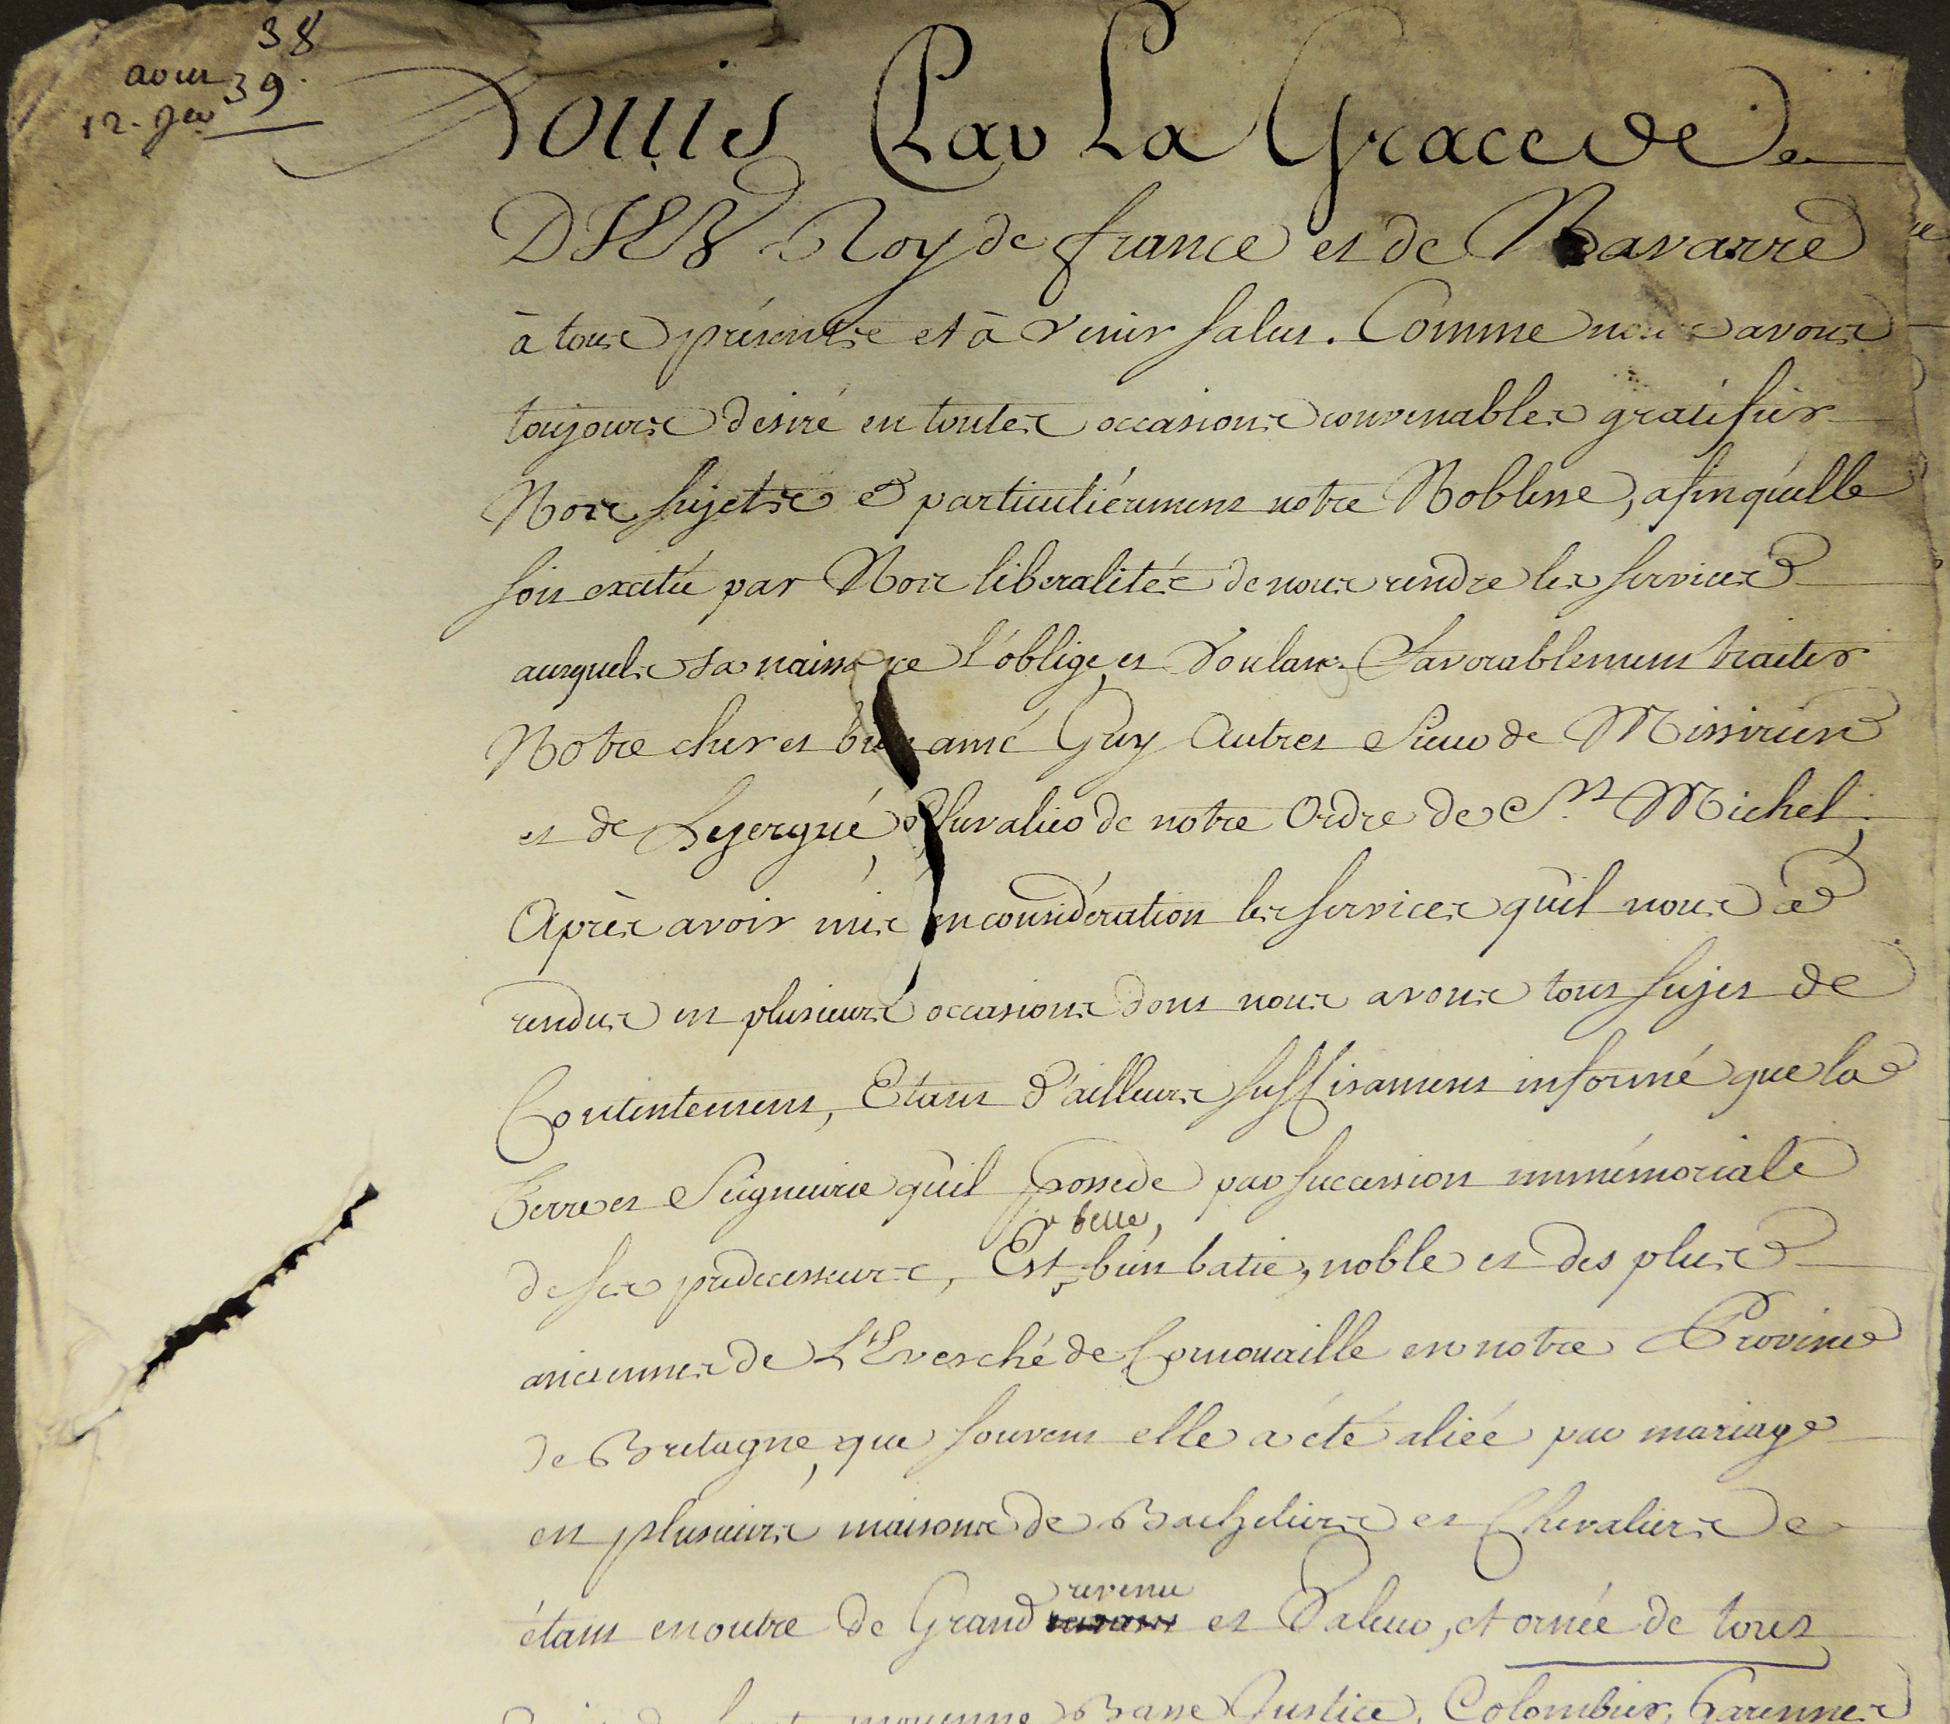 38
aoust 39.
12.
Louis Par La Grace de
DIEU Roy de france et de Navarre
à tous présents et à venir salut. Comme nous avons
toujours desiré en toutes occasions convenables gratifier
Nos sujets & particuliérement notre Noblesse, afin qu'elle
soit excitée par Nos liberalités de nous rendre les services
ausquels sa naissance l'óblige, et Voulant favorablement traiter
Notre cher et bien amé Guy Autret Sieur de Missirien
et de Lezergué, Chevalier de notre Ordre de St. Michel,
Après avoir mis en considération les services qu'il nous a
rendus en plusieurs occasions dont nous avons tout sujet de
Contentement, Etant d'ailleurs suffisament informé que la
Terre et Seigneurie qu'il possede par succession immémoriale
belle,
de ses predecesseurs, Est bien batie, noble et des plus
anciennes de L'Evesché de Cornouaille en notre Province
de Bretagne, que souvent elle a été aliée par mariage
en plusieurs maisons de Bacheliers et Chevaliers
revenu
étant en outre de Grand et Valeur, et ornée de tout
moyenne Basse Justice, Colombier, Garennes